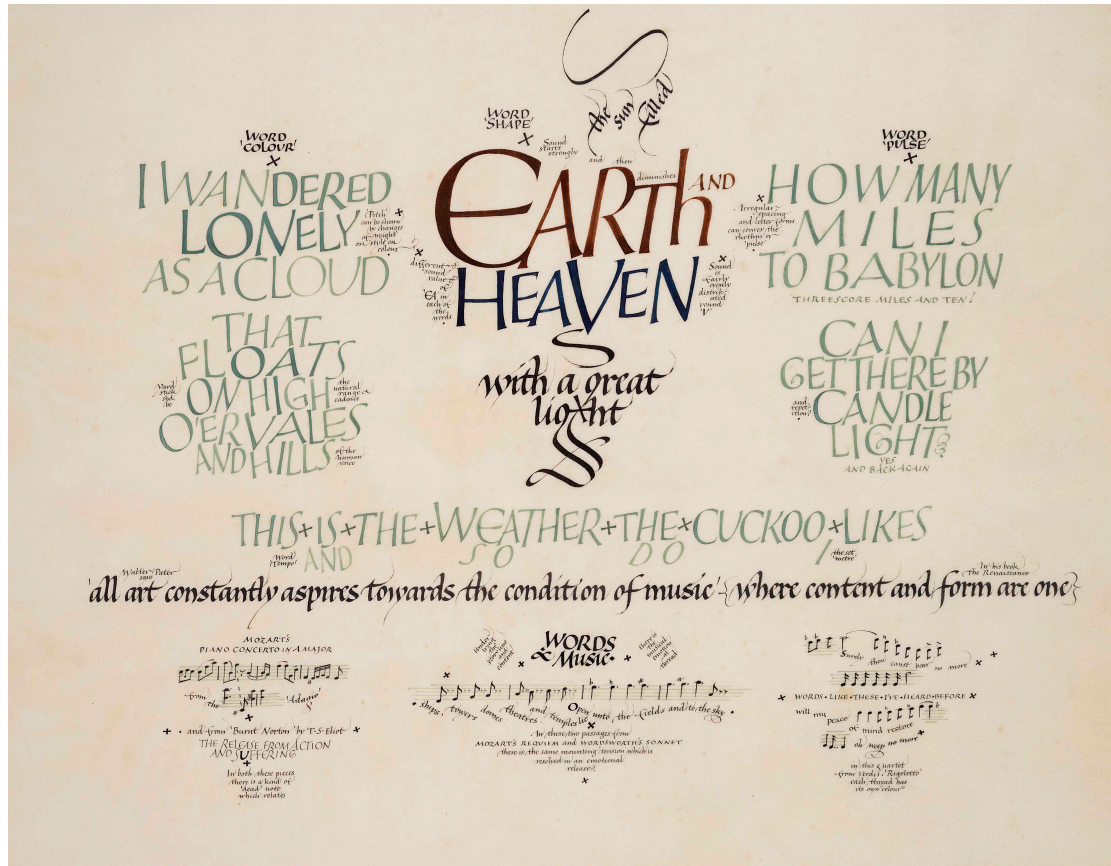 WORD
'COLOUR'
I WANDERED
LONELY
AS A CLOUD
'Pitch'
can be shown
by changes
of weight
or style or
colour
THAT
FLOATS
ON HIGH
O'ER VALES
AND HILLS
the
natural
range &
cadence
of the
human
voice
WORD
'SHAPE'
the sun filled
Sound
starts
strongly
and then
diminishes
EARTH AND
HEAVEN
different
sound
value
of
'EA' in
each of
the
words
Sound
is
fairly
evenly
distrib-
uted
round
'V'
with a great
light
WORD
'PULSE'
HOW MANY
MILES
TO BABYLON
THREESCORE MILES AND TEN!
Irregular
spacing
and letter forms
can convey the
rhythm or
'pulse'
CAN I
GET THERE BY
CANDLE
LIGHT?
and
repet-
ition?
YES
AND BACK AGAIN
THIS+IS+THE+WEATHER+THE+CUCKOO+LIKES
Word
'Tempo'
AND SO DO I
the set
metre
Walter Pater
says
In his book
the Renaissance
'all art constantly aspires towards the condition of music' where content and form are one
MOZART'S
PIANO CONCERTO IN A MAJOR
from the 'Adagio'
and from 'Burnt Norton' by T·S·Eliot
THE RELEASE FROM ACTION
AND SUFFERING
In both these pieces
there is a kind of
'dead' note
which relates
WORDS
& MUSIC
there is
the
musical
thread
ships, towers domes theatres and temples lie Open unto the fields and to the sky
In these two passages from
MOZART'S REQUIEM and WORDSWORTH'S SONNET
there is the same mounting tension which is
resolved in an emotional
release
Swords thou canst bear no more
WORDS·LIKE·THESE·I'VE·HEARD·BEFORE
will my peace of mind restore
oh weep no more
in this quartet
from Verdi's 'Rigoletto'
each thread has
its own colour